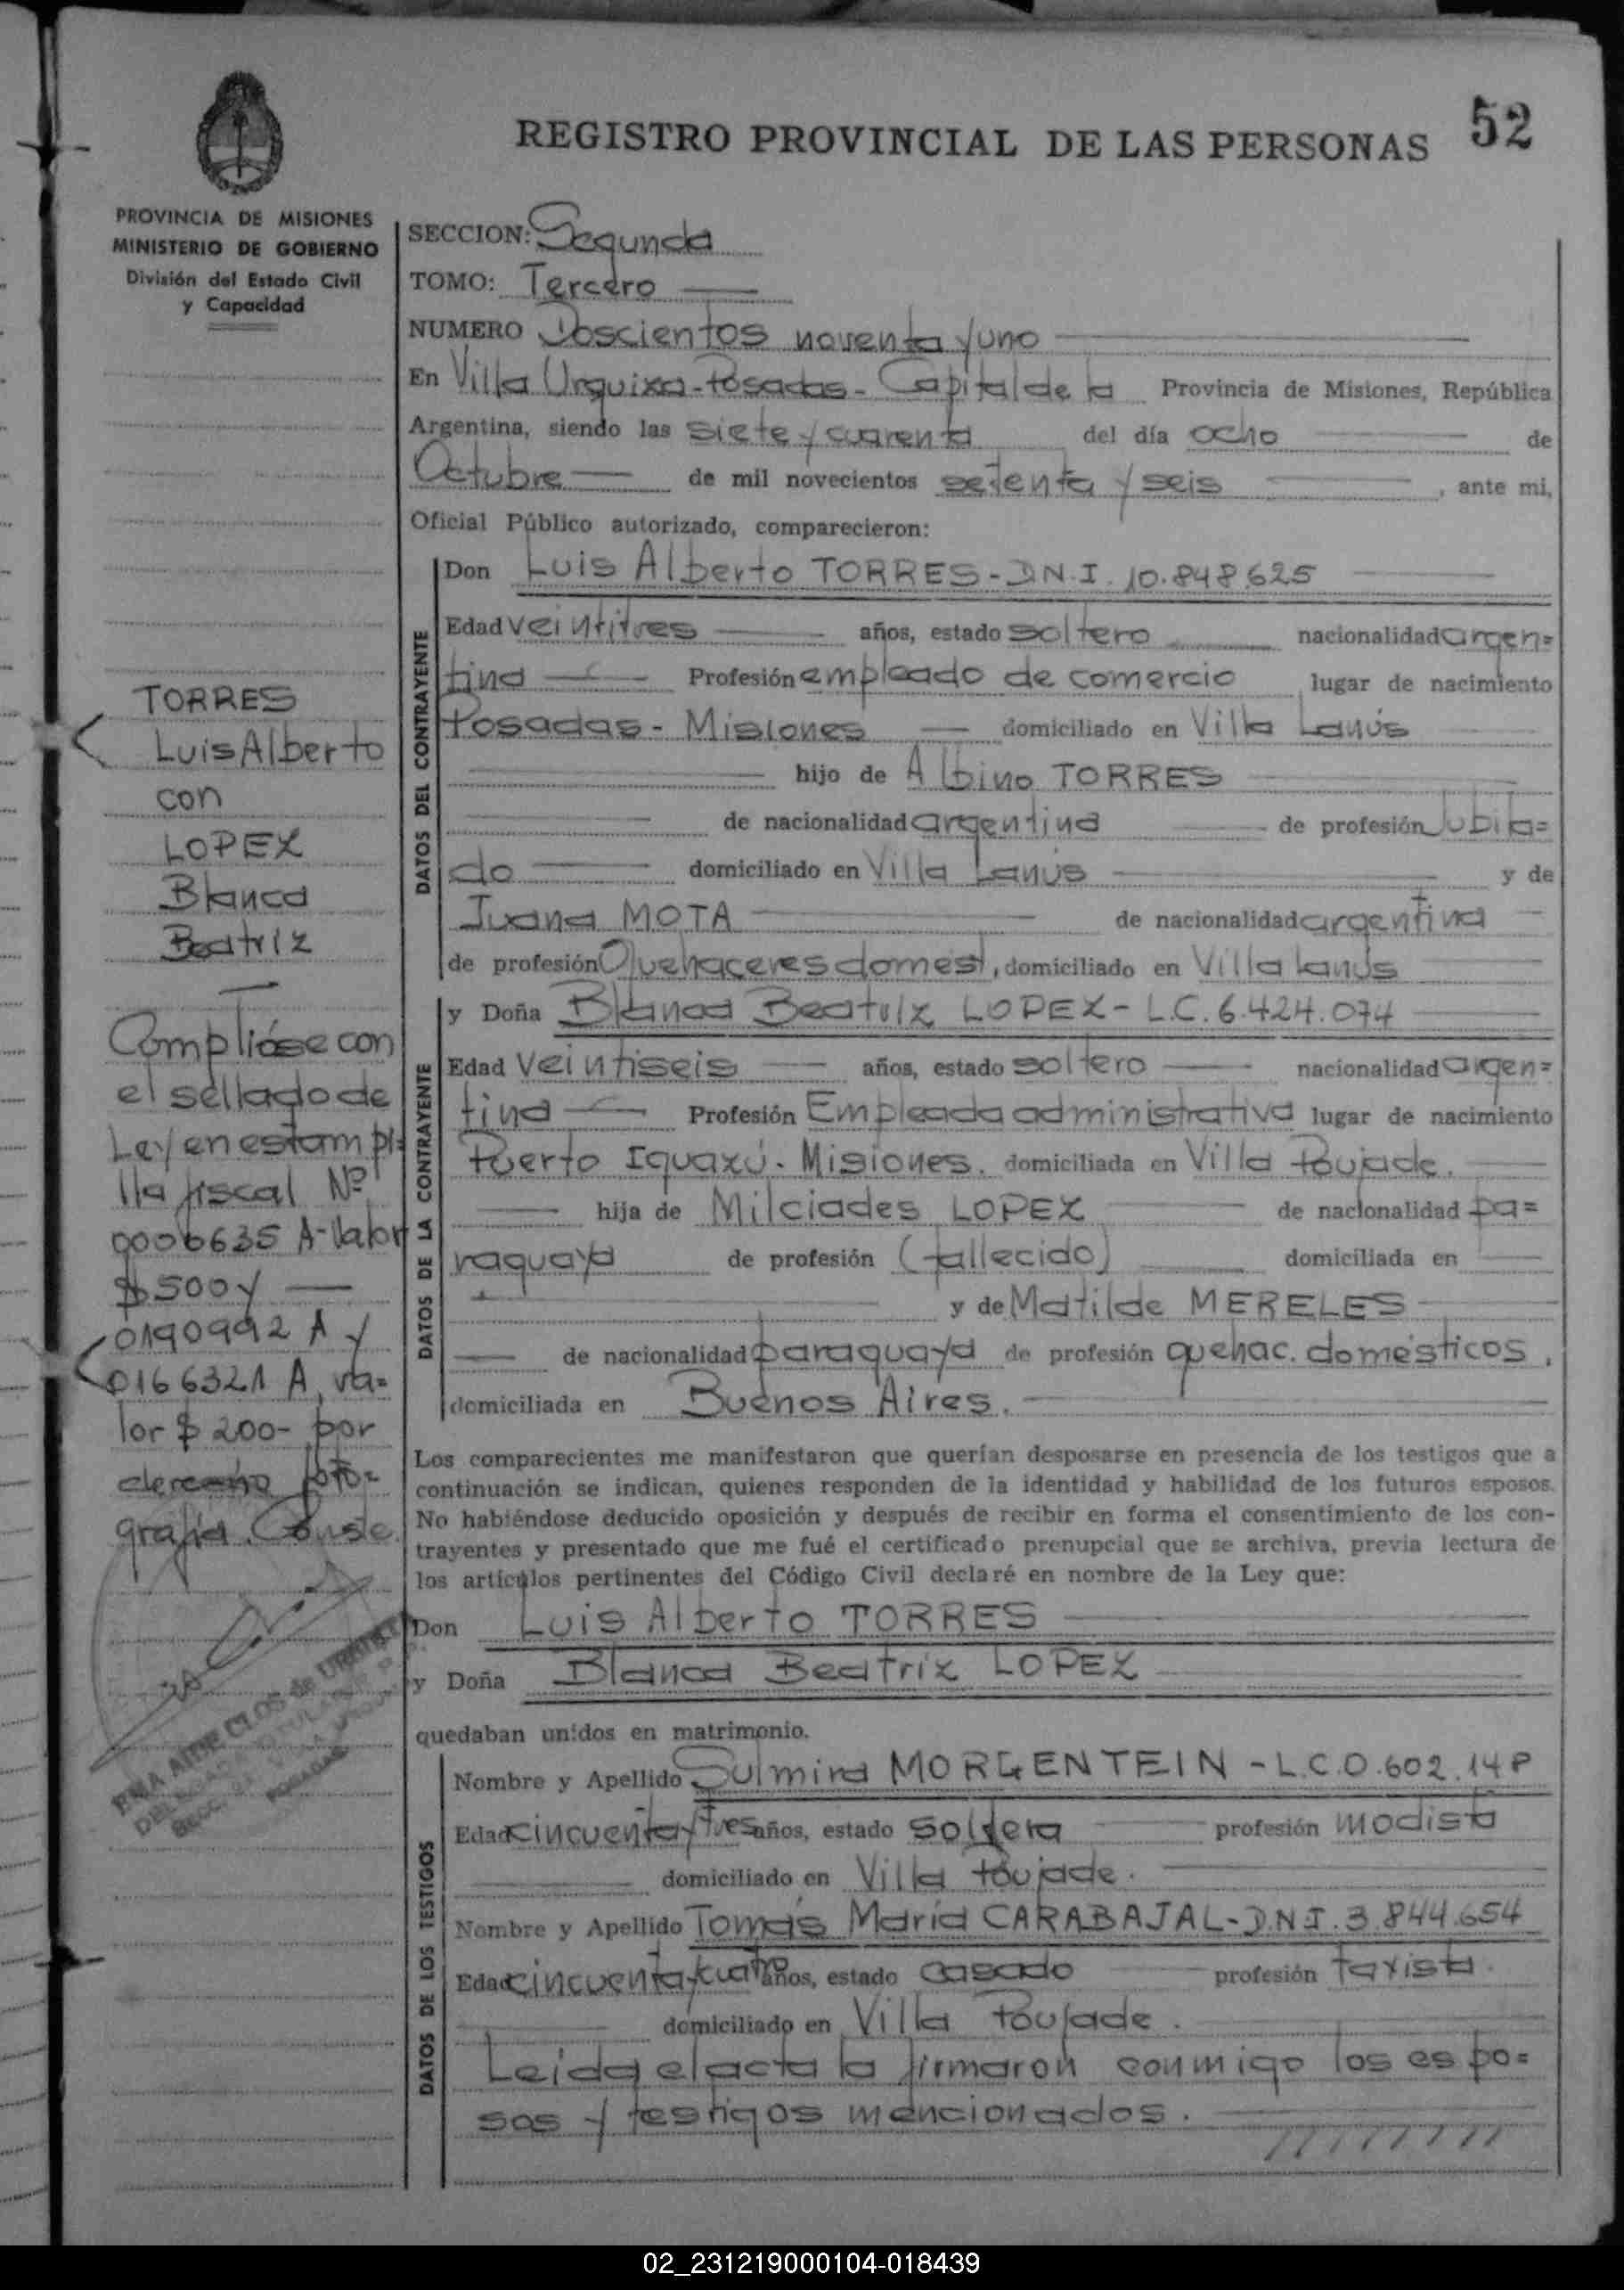 52
REGISTRO PROVINCIAL DE LAS PERSONAS
PROVINCIA DE MISIONES
MINISTERIO DE GOBIERNO
División del Estado Civil
y Capacidad
TORRES
Luis Alberto
con
LOPEZ
Blanca
Beatriz
Complióse con
el sellado de
Ley en estampi=
lla fiscal Nº
0006635 A-Valor
$ 500 y
0190992 A y
0166321 A, va=
lor $ 200- por
derecho foto=
grafía. Conste.
DATOS DEL CONTRAYENTE
DATOS DE LA CONTRAYENTE
DATOS DE LOS TESTIGOS
SECCION: Segunda
TOMO: Tercero
NUMERO Doscientos noventa y uno
En Villa Urquiza-Posadas-Capital de la Provincia de Misiones, República
Argentina, siendo las siete y cuarenta del día ocho de
Octubre de mil novecientos setenta y seis, ante mi,
Oficial Público autorizado, comparecieron:
Don Luis Alberto TORRES-D.N.I. 10.848.625
Edad veintitres años, estado soltero nacionalidad argen=
tina Profesión empleado de comercio lugar de nacimiento
Posadas - Misiones domiciliado en Villa Lanús
hijo de Albino TORRES
de nacionalidad argentina de profesión Jubila=
do domiciliado en Villa Lanús y de
Juana MOTA de nacionalidad argentina
de profesión Quehaceres domést, domiciliado en Villa Lanús
y Doña Blanca Beatriz LOPEZ - L.C. 6.424.074
Edad veintiseis años, estado soltero nacionalidad argen=
tina Profesión Empleada administrativa lugar de nacimiento
Puerto Iguazú. Misiones. domiciliada en Villa Poujade.
hija de Milciades LOPEZ de nacionalidad pa=
raguaya de profesión (fallecido) domiciliada en
y de Matilde MERELES
de nacionalidad paraguaya de profesión quehac. domésticos,
domiciliada en Buenos Aires.
Los comparecientes me manifestaron que querían desposarse en presencia de los testigos que a
continuación se indican, quienes responden de la identidad y habilidad de los futuros esposos.
No habiéndose deducido oposición y después de recibir en forma el consentimiento de los con-
trayentes y presentado que me fué el certificado prenupcial que se archiva, previa lectura de
los artículos pertinentes del Código Civil declaré en nombre de la Ley que:
Don Luis Alberto TORRES
y Doña Blanca Beatriz LOPEZ
quedaban unidos en matrimonio.
Nombre y Apellido Sulmira MORGENTEIN - L.C.0.602.148
Edad cincuenta y tres años, estado soltera profesión modista
domiciliado en Villa Poujade.
Nombre y Apellido Tomás María CARABAJAL-D.N.I. 3.844.654
Edad cincuenta y cuatro años, estado casado profesión taxista.
domiciliado en Villa Poujade.
Leída el acta la firmaron conmigo los espo=
sos y testigos mencionados.
02_231219000104-018439